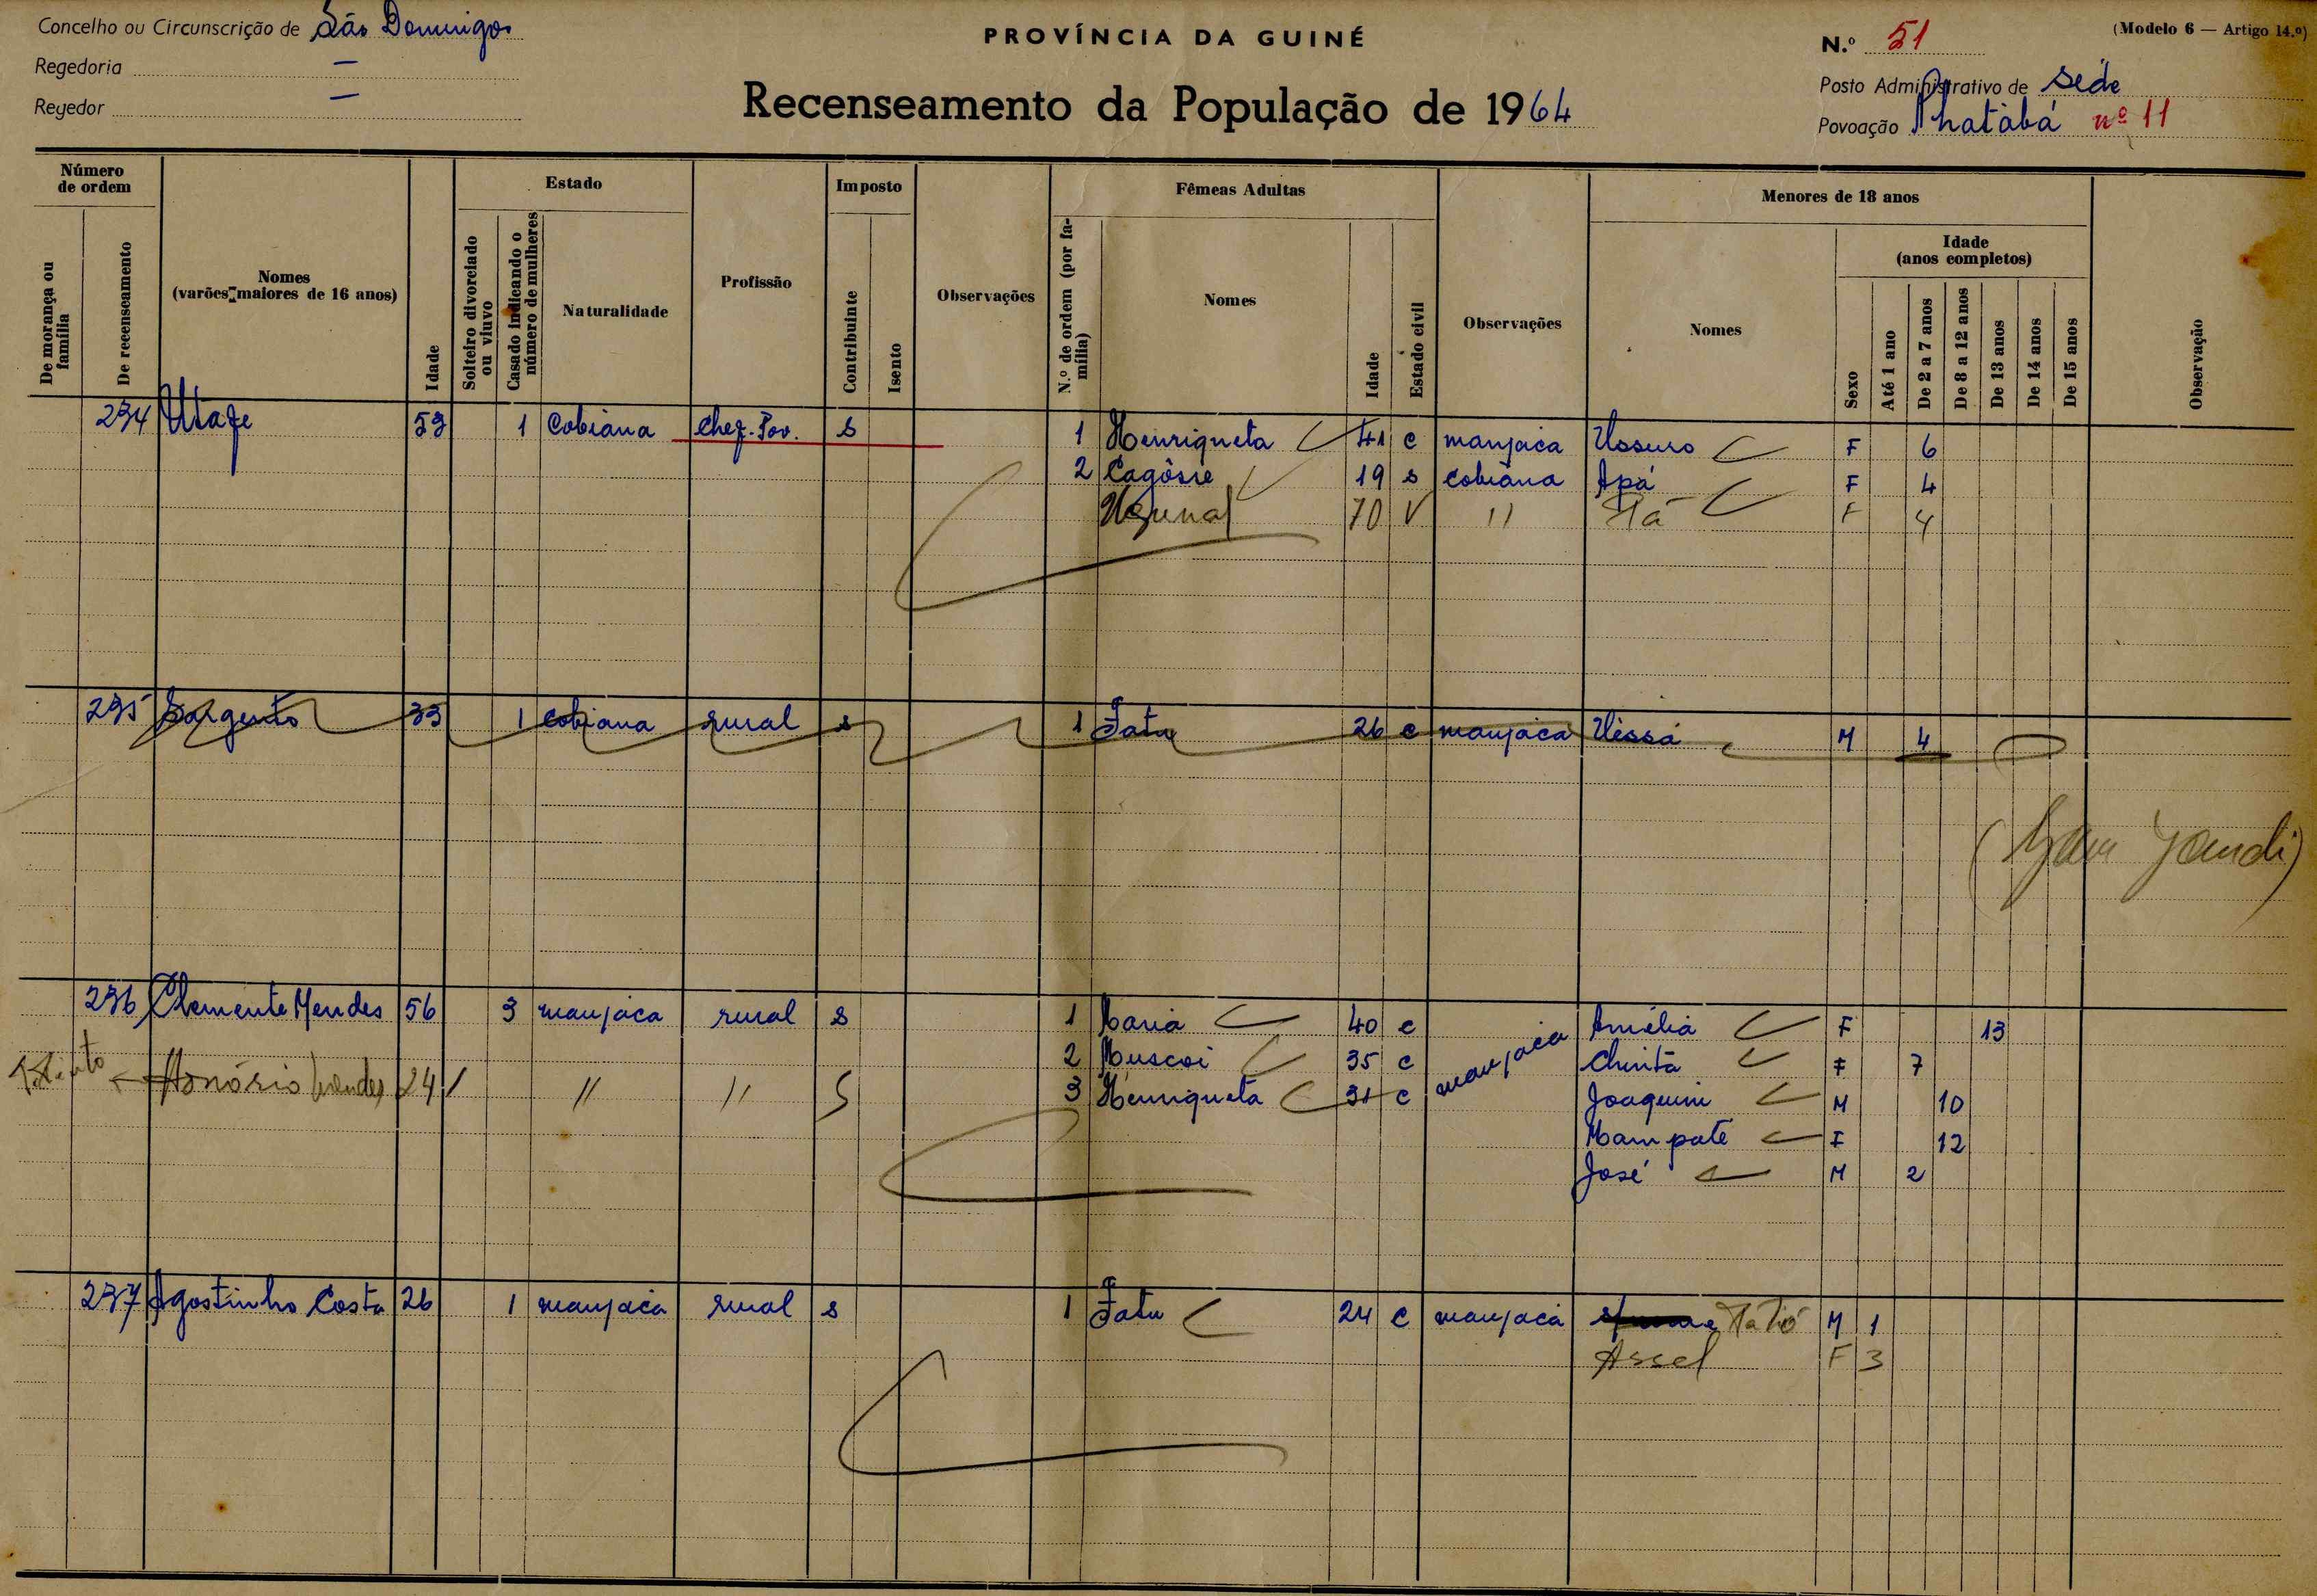 Concelho ou Circunscrição de São Domingos
PROVÍNCIA DA GUINÉ
N.º 51
(Modelo 6 — Artigo 14.º)
Regedoria —
Regedor —
Recenseamento da População de 1964
Posto Administrativo de Sede
Povoação nº 11
Número de ordem
De morança ou família
De recenseamento
Nomes (varões maiores de 16 anos)
Idade
Estado
Solteiro divorciado ou viuvo
Casado indicando o número de mulheres
Naturalidade
Profissão
Imposto
Contribuinte
Isento
Observações
Fêmeas Adultas
N.º de ordem (por família)
Nomes
Idade
Estado civil
Observações
Menores de 18 anos
Nomes
Sexo
Idade (anos completos)
Até 1 ano
De 2 a 7 anos
De 8 a 12 anos
De 13 anos
De 14 anos
De 15 anos
Observação
234 53 1 Cobiana Chef. Pov. s 1 Henriqueta 41 c manjaca F 6
2 Cagósie 19 s cobiana Apá F 4
70 V " F 4
235 Sargento 33 1 cobiana rural s 1 Fatu 26 c manjaca M 4
236 Clemente Mendes 56 3 manjaca rural s 1 Maria 40 c manjaca Amélia F 13
2 35 c Chinta F 7
Honório Mendes 24 " " S 3 Henriqueta 31 c Joaquim M 10
Mampate F 12
José M 2
237 Agostinho Costa 26 1 manjaca rural s 1 Fatu 24 c manjaca M 1
Assel F 3